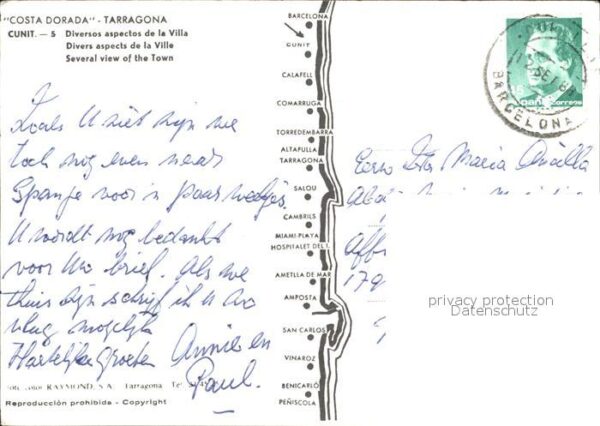 "COSTA DORADA" - TARRAGONA
CUNIT. — 5 Diversos aspectos de la Villa
Divers aspects de la Ville
Several view of the Town
Zoals U ziet zijn we
toch nog even naar
Spanje voor 'n paar weekjes.
U wordt nog bedankt
voor Uw brief. Als we
thuis zijn schrijf ik U zo
vlug mogelijk
Hartelijke groeten Annie en
Paul.
RAYMOND, S.A. Tarragona
Reproducción prohibida - Copyright
BARCELONA
CUNIT
CALAFELL
COMARRUGA
TORREDEMBARRA
ALTAFULLA
TARRAGONA
SALOU
CAMBRILS
MIAMI-PLAYA
HOSPITALET DEL I.
AMETLLA DE MAR
AMPOSTA
SAN CARLOS
VINAROZ
BENICARLÓ
PEÑISCOLA
correos
BARCELONA
Maria
privacy protection
Datenschutz